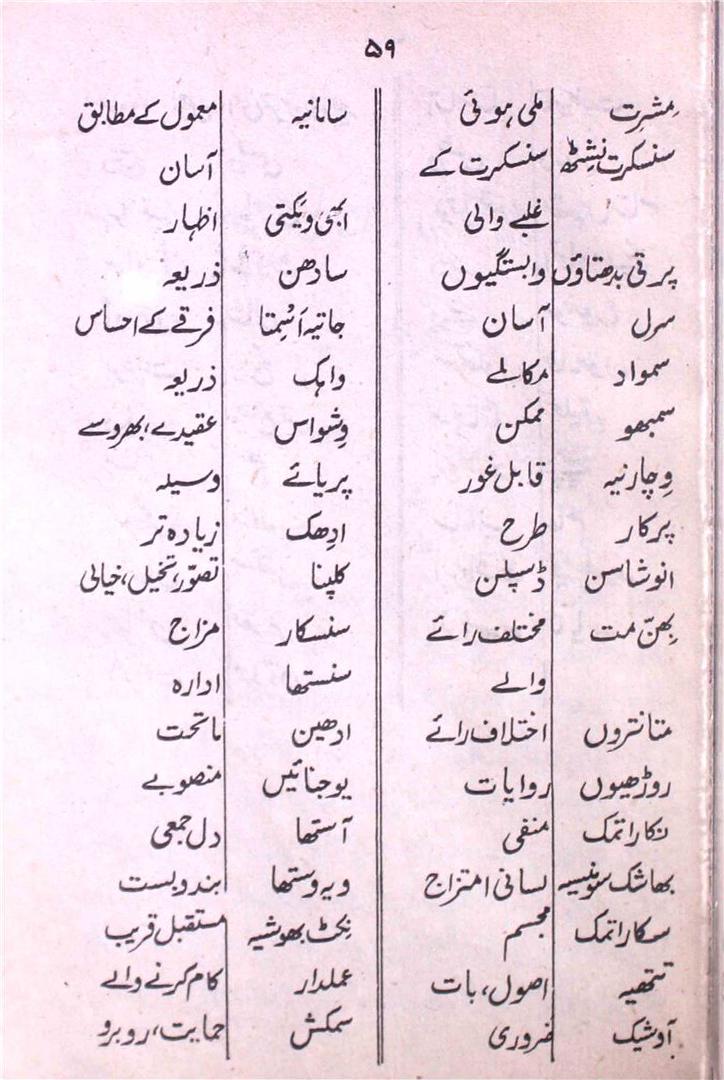 ۵۹
مِشرِت ملی ہوئی
سنسکرت نِشٹھ سنسکرت کے
غلبے والی
پرتی بدھتاؤں وابستگیوں
سرل آسان
سمواد مکالمے
سمبھو ممکن
وِچارنیہ قابل غور
پرکار طرح
انوشاسن ڈسپلن
بھِنّ مت مختلف رائے
والے
متانتروں اختلاف رائے
روڑھیوں روایات
نکاراتمک منفی
بھاشک سونیسیہ لسانی امتزاج
سکاراتمک مجسم
تتھیہ اصول، بات
آوشیک ضروری
سامانیہ معمول کے مطابق
آسان
ابھی ویکتی اظہار
سادھن ذریعہ
جاتیہ اَسْمِتا فرقے کے احساس
واہک ذریعہ
وِشواس عقیدے، بھروسے
پریائے وسیلہ
ادِھک زیادہ تر
کلپنا تصوّر، تخیل، خیالی
سنسکار مزاج
سنستھا ادارہ
ادھین ماتحت
یوجنائیں منصوبے
آستھا دل جمعی
ویوستھا بندوبست
نِکٹ بھوشیہ مستقبل قریب
عملدار کام کرنے والے
سمکش حمایت، روبرو